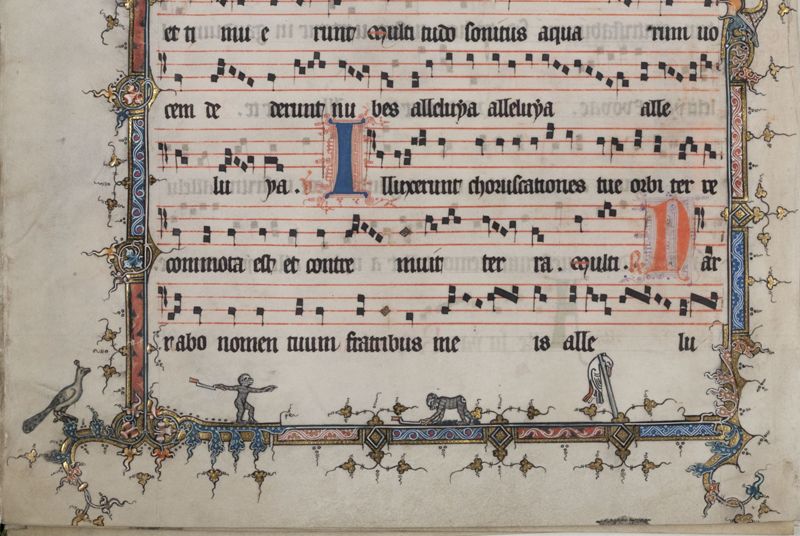 et ti mu e runt multi tudo sonitus aqua rum uo
cem de derunt nu bes alleluya alleluya alle
lu ya. Illuxerunt choruscationes tue orbi ter re
commota est et contre muit ter ra. multi. Nar
rabo nomen tuum fratribus me is alle lu